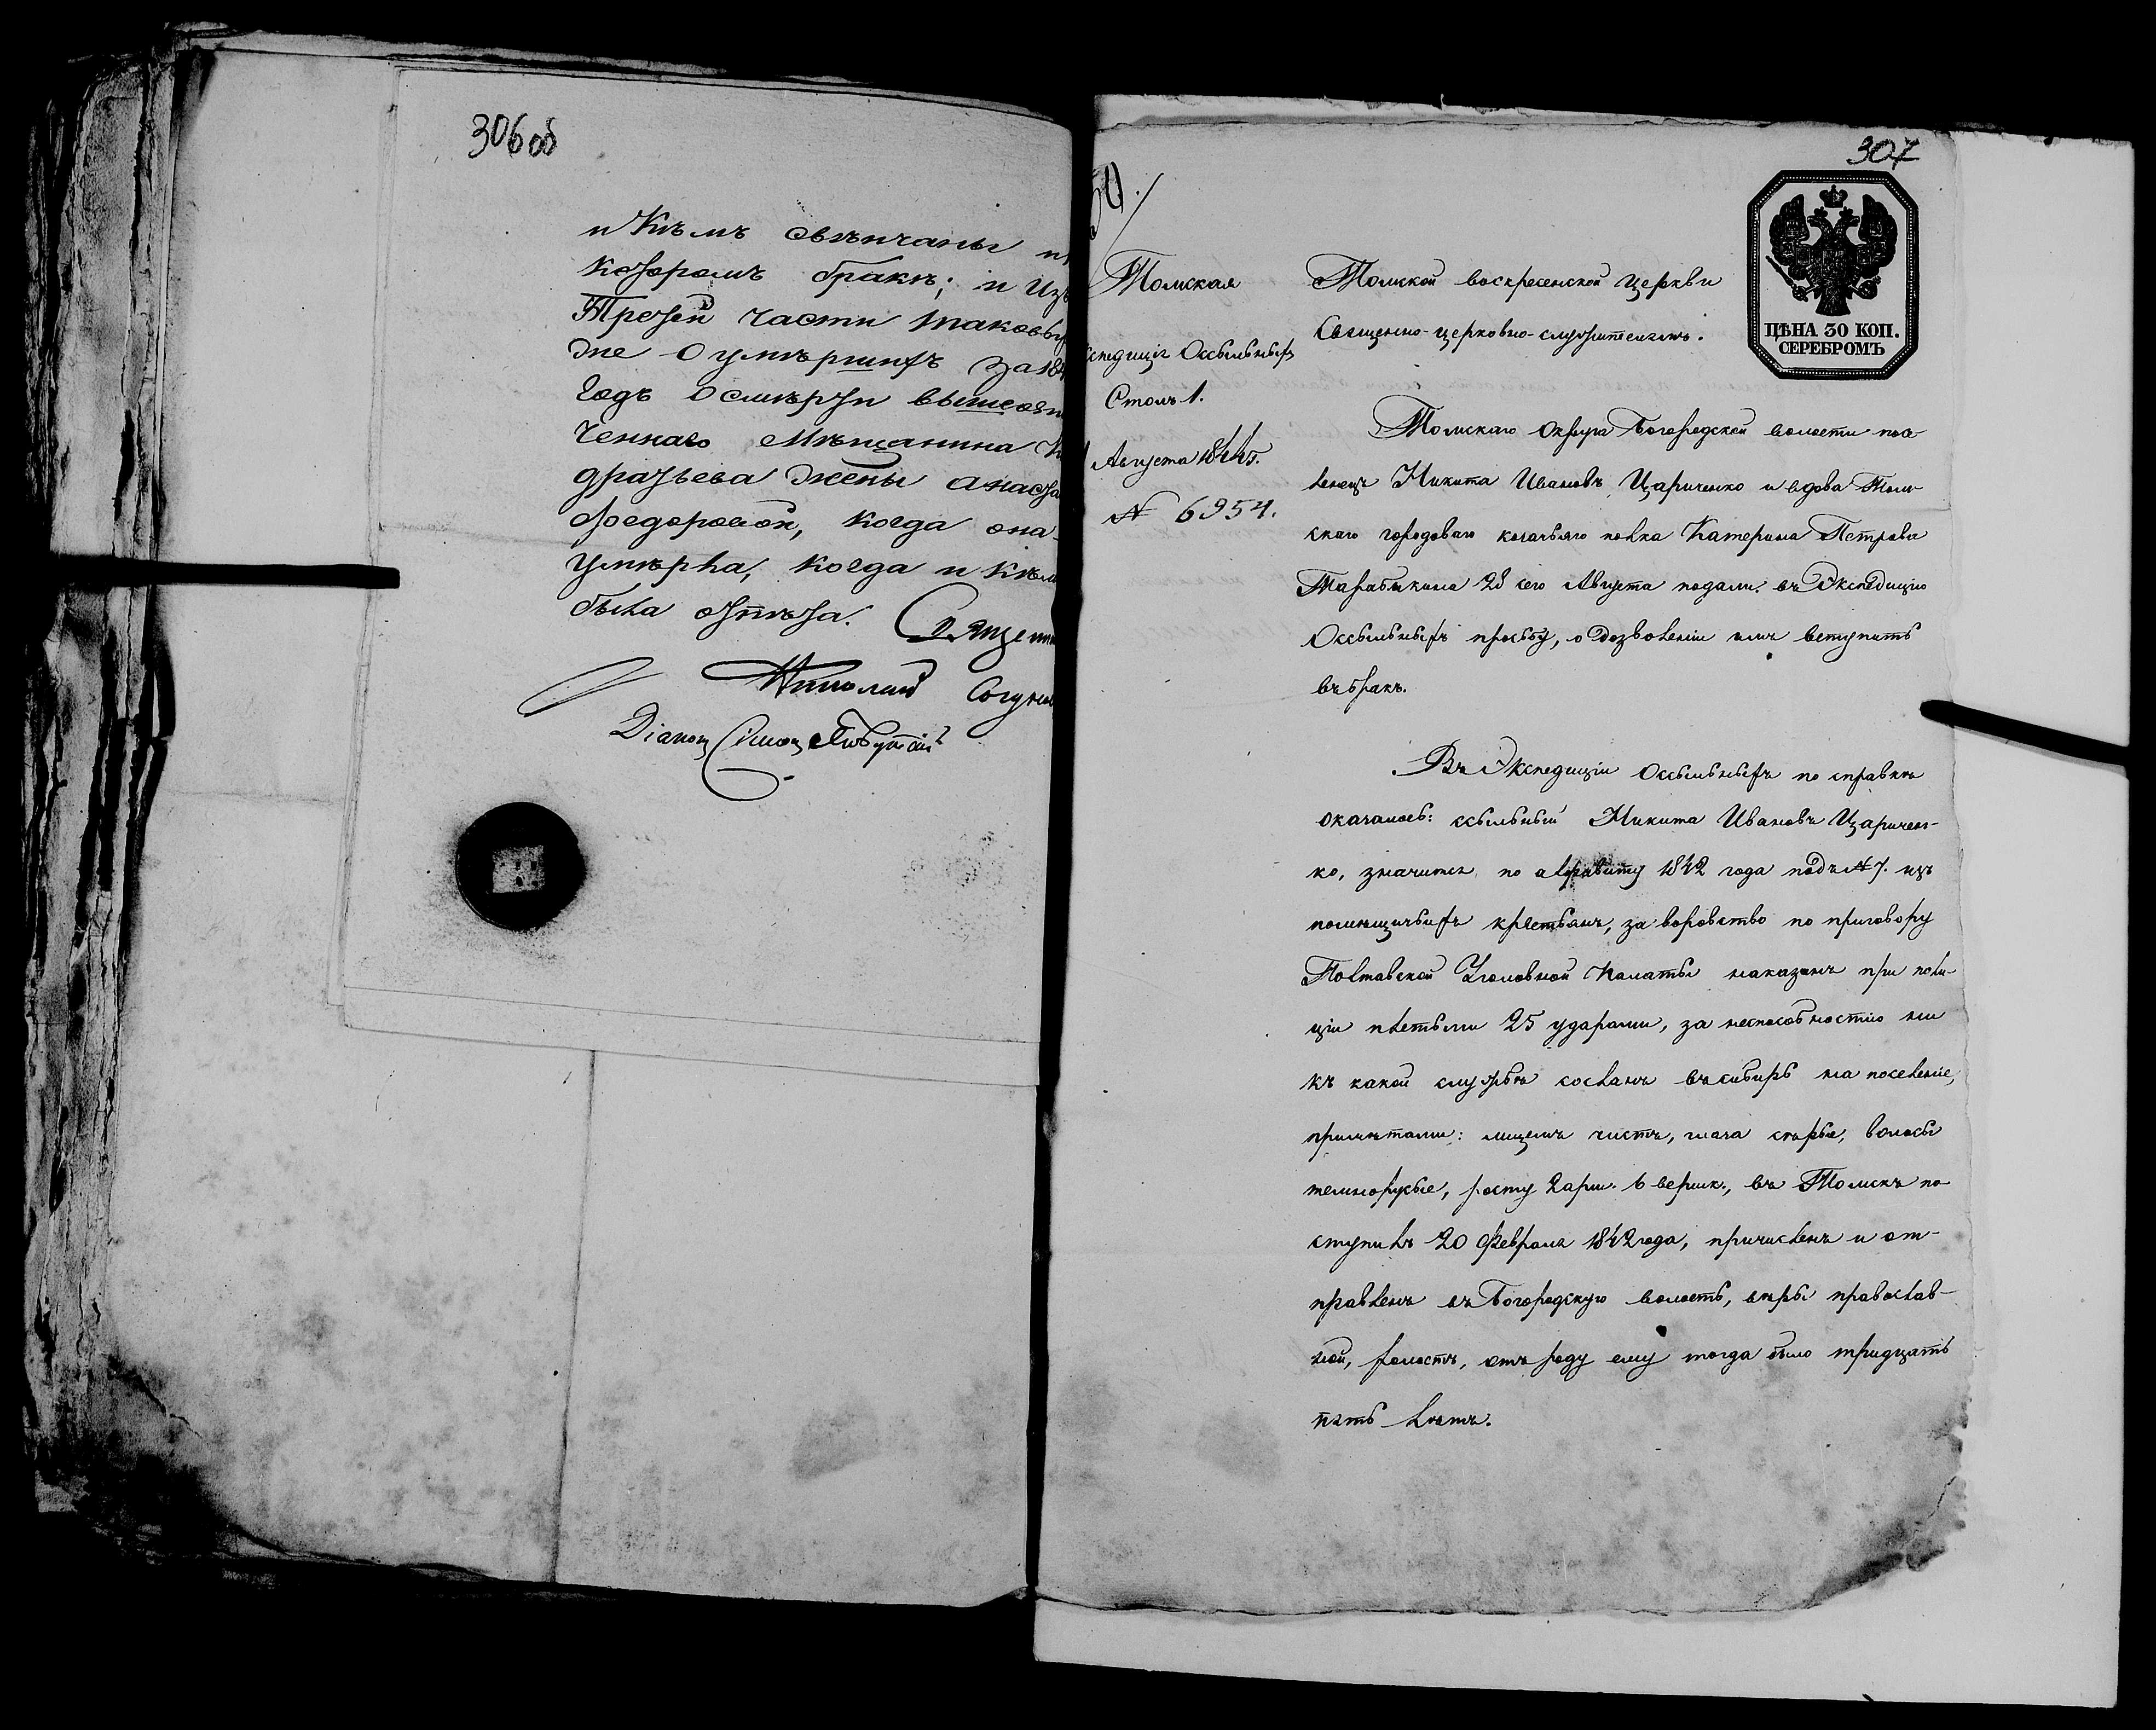 306 об
и Кѣмъ обвѣнчаны
которомъ бракѣ; и Изъ
Третей части таковы
же о умѣршихъ за 184
годъ о смѣрти вышеозна
ченнаго Мѣщанина
дратьева жены Анаста
Федоровой, когда она
умѣрла, когда и кѣмъ
была отпѣта. Священн
Діаконъ Симонъ
307
ЦѢНА 30 КОП.
СЕРЕБРОМЪ
Томская
Экспедиція Оссыльныхъ
Столъ 1.
Августа 1844 г.
№ 6954.
Томской воскресенской церкви
Священно-церковно-служителямъ.
Томскаго округа Богородской волости посе-
ленецъ Никита Ивановъ Цариченко и вдова Том-
скаго городоваго козачьяго полка Катерина Петрова
28 сего Августа подали въ Экспедицію
Оссыльныхъ прозьбу, о дозволеніи имъ вступить
въ бракъ.
Въ Экспедиціи Оссыльныхъ по справкѣ
оказалось: ссыльный Никита Ивановъ Царичен-
ко, значится по алфавиту 1842 года подъ № 7. изъ
помѣщичьихъ крестьянъ, за воровство по приговору
Полтавской Уголовной Палаты наказанъ при поли-
ціи плетьми 25 ударами, за неспособностію ни
къ какой службѣ сосланъ въ сибирь на поселеніе,
примѣтами: лицемъ чистъ, глаза сѣрые, волосы
темнорусые, росту 2 арш. 6 вершк., въ Томскъ по-
ступилъ 20 Февраля 1842 года, причисленъ и от-
правленъ въ Богородскую волость, вѣры православ-
ной, холостъ, отъ роду ему тогда было тридцать
пять лѣтъ.